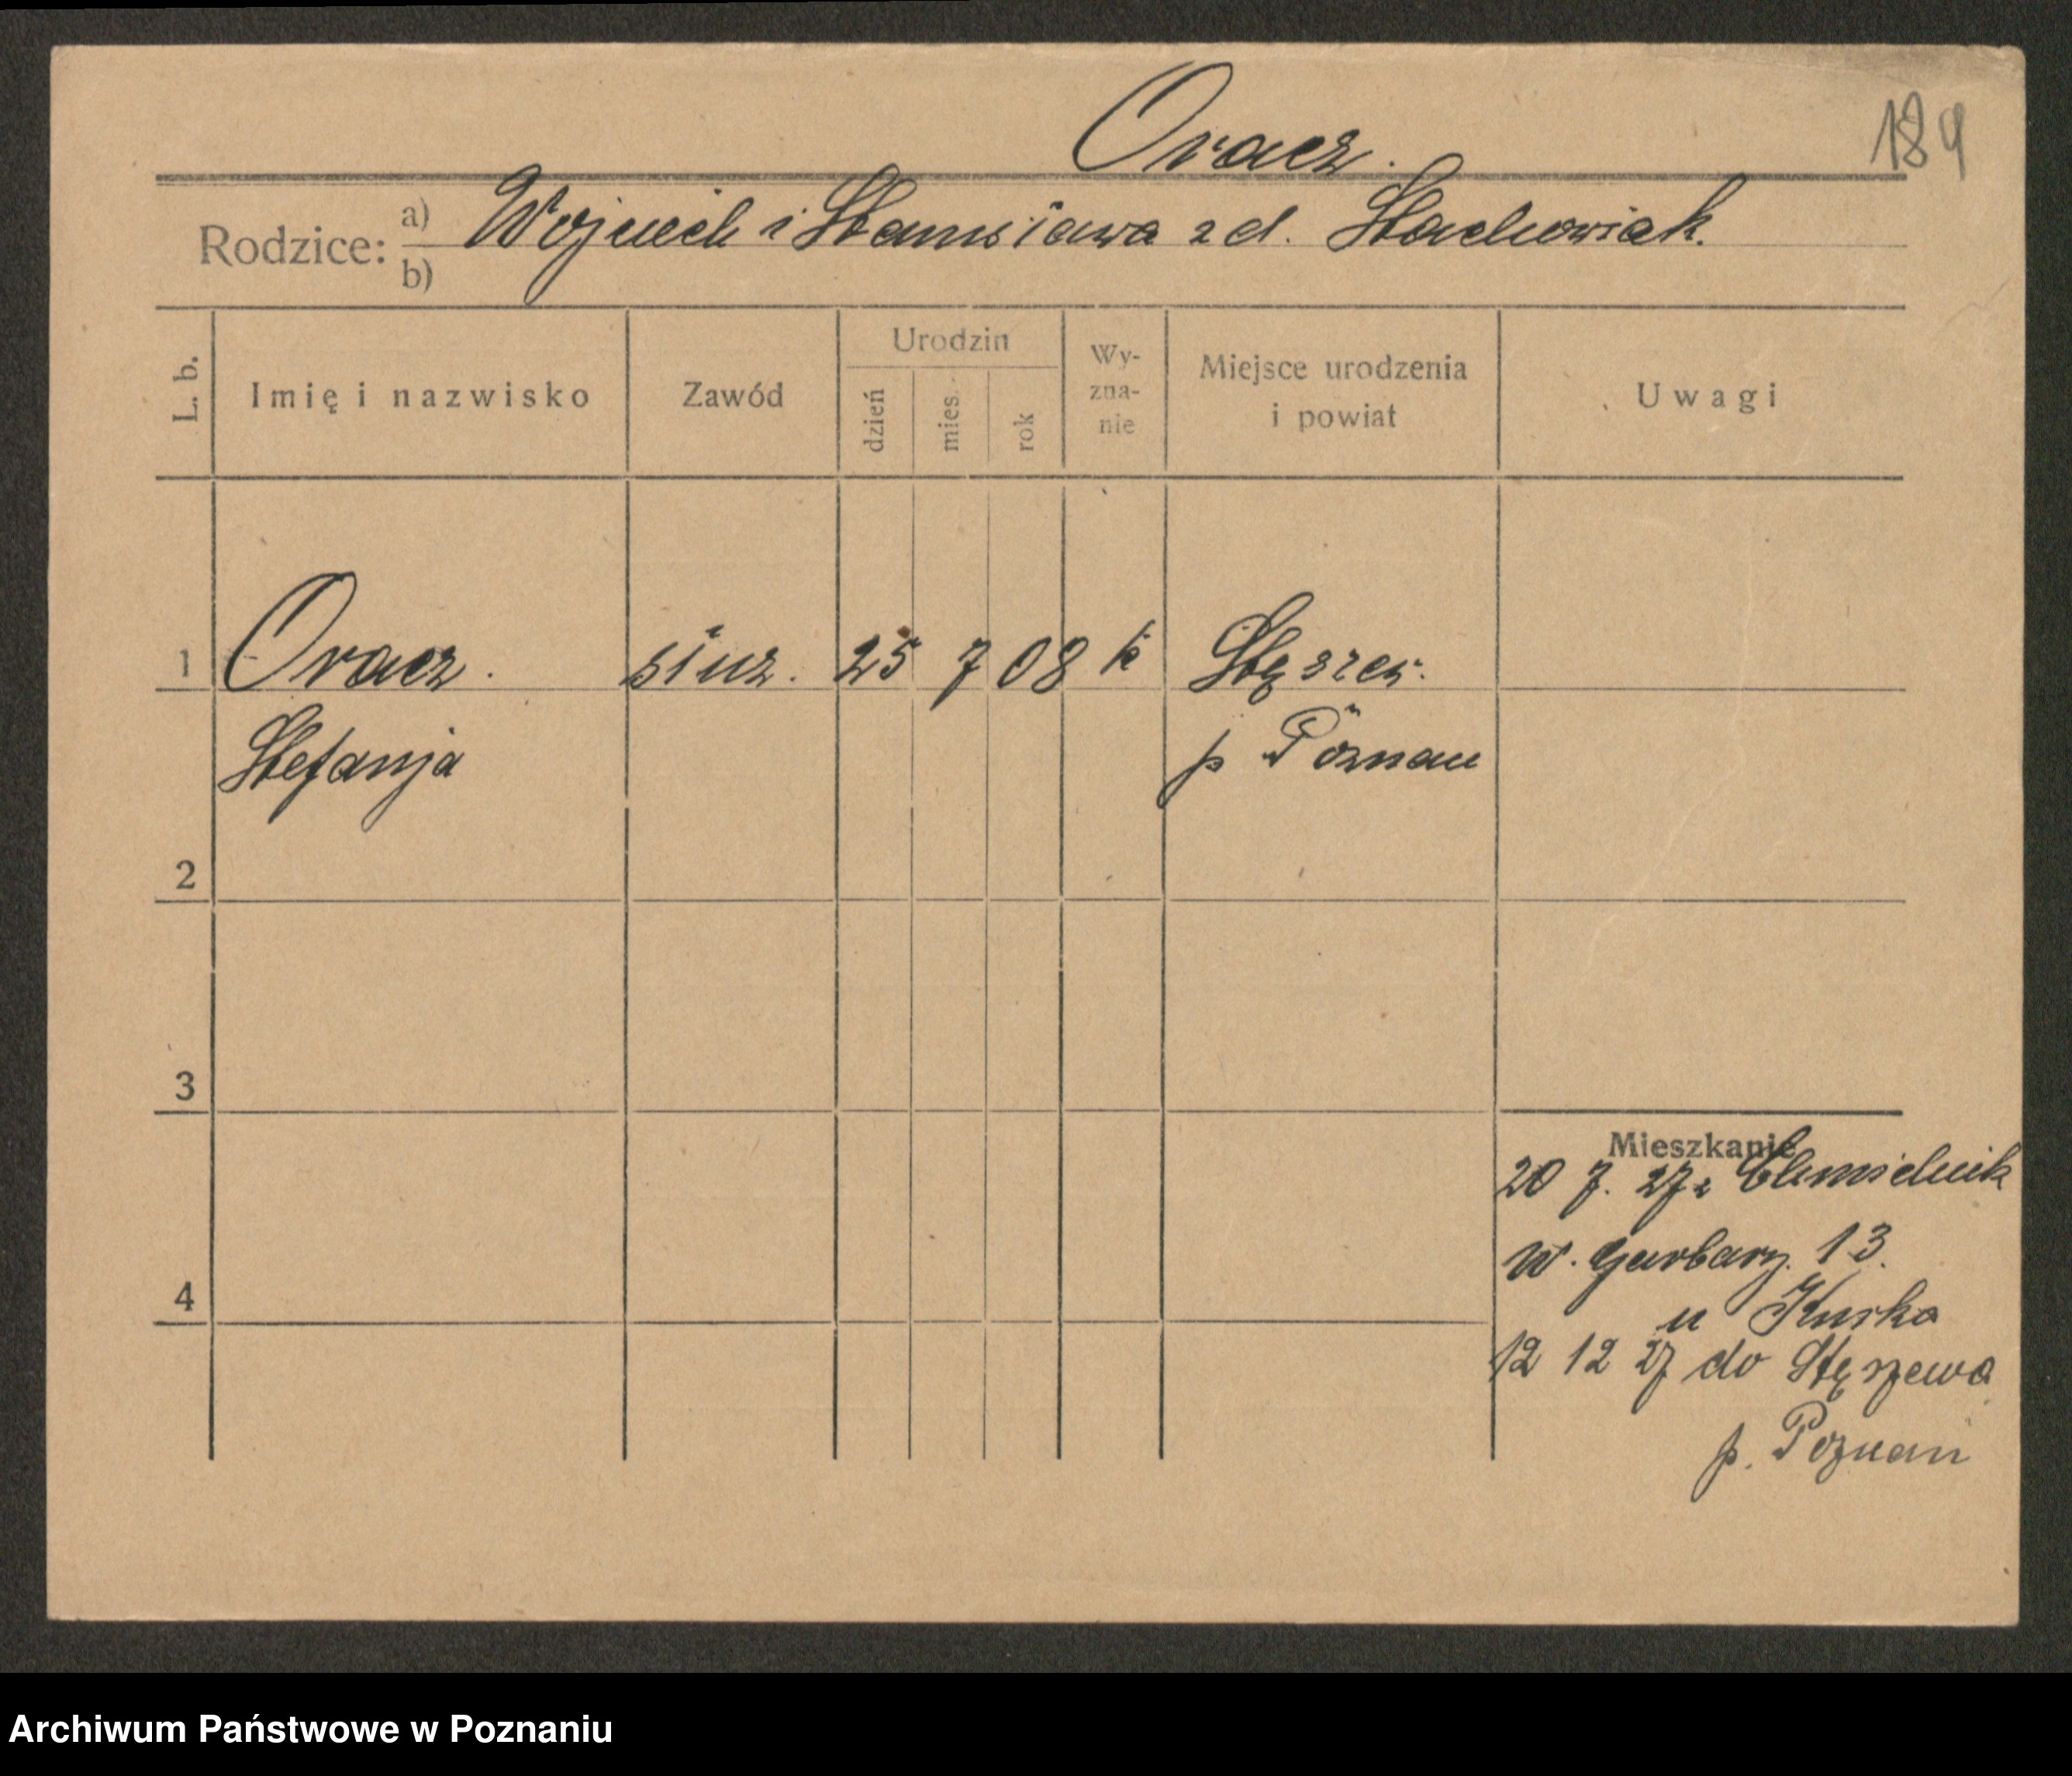 Oracz.
184
Rodzice: a) Wojciech i Stanisława z d. Stachowiak.
b)
L. b.
Imię i nazwisko
Zawód
Urodzin
dzień
mies.
rok
Wy-
zna-
nie
Miejsce urodzenia
i powiat
Uwagi
1 Oracz. służ. 25 7 08 k Stęszew.
Stefanja p Poznań
2
3
4
Mieszkanie
20 7. 27 z Chmielnik
W. Garbary. 13.
u Kurka
12 12 27 do Stęszewa
p. Poznań
Archiwum Państwowe w Poznaniu